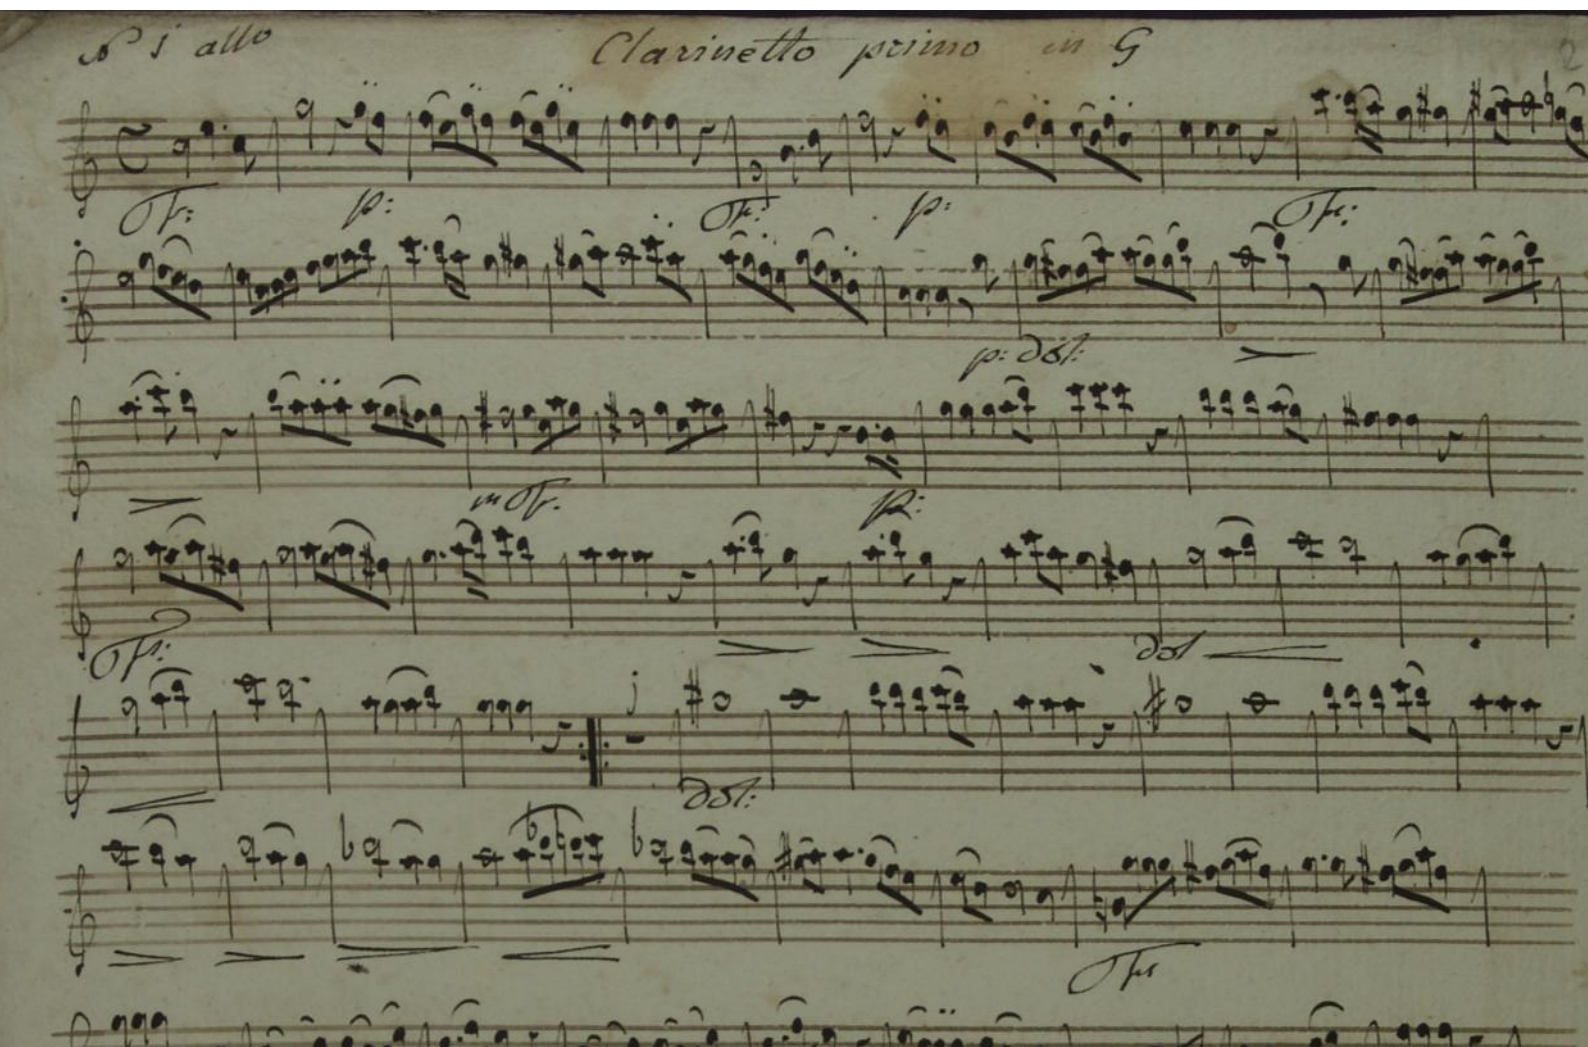 No 1 allo Clarinetto primo in G 2
Fr: p: Fr: p: Fr:
p: dol:
mFr. p:
Fr: dol
1
dol:
Fr